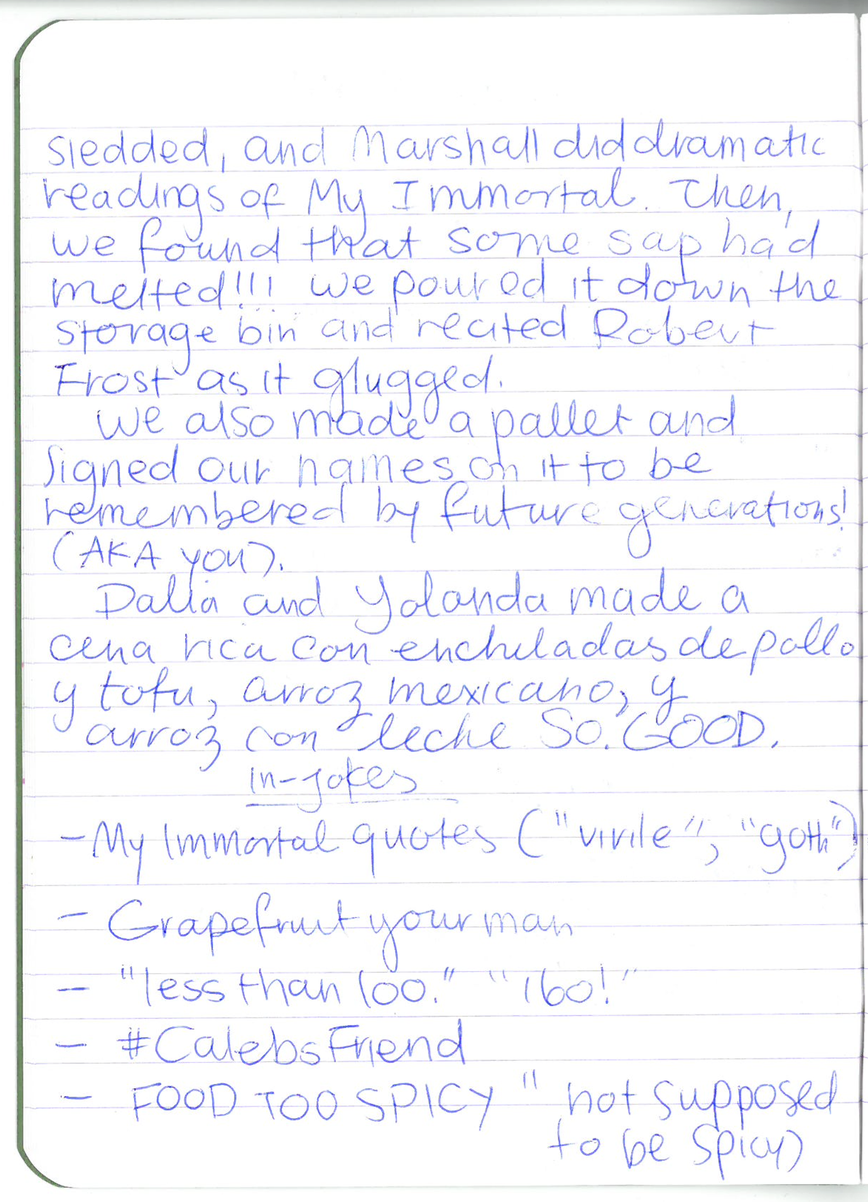 sledded, and Marshall did dramatic
readings of My Immortal. Then,
we found that some sap had
melted!!! We poured it down the
storage bin and recited Robert
Frost as it glugged.
We also made a pallet and
signed our names on it to be
remembered by future generations!
(AKA YOU).
Dalia and Yolanda made a
cena rica con enchiladas de pollo
y tofu, arroz mexicano, y
arroz con leche SO. GOOD.
in-jokes
- My Immortal quotes ("virile", "goth")
- Grapefruit your man
- "less than 100." "160!"
- #CalebsFriend
- FOOD TOO SPICY " not supposed
to be spicy)